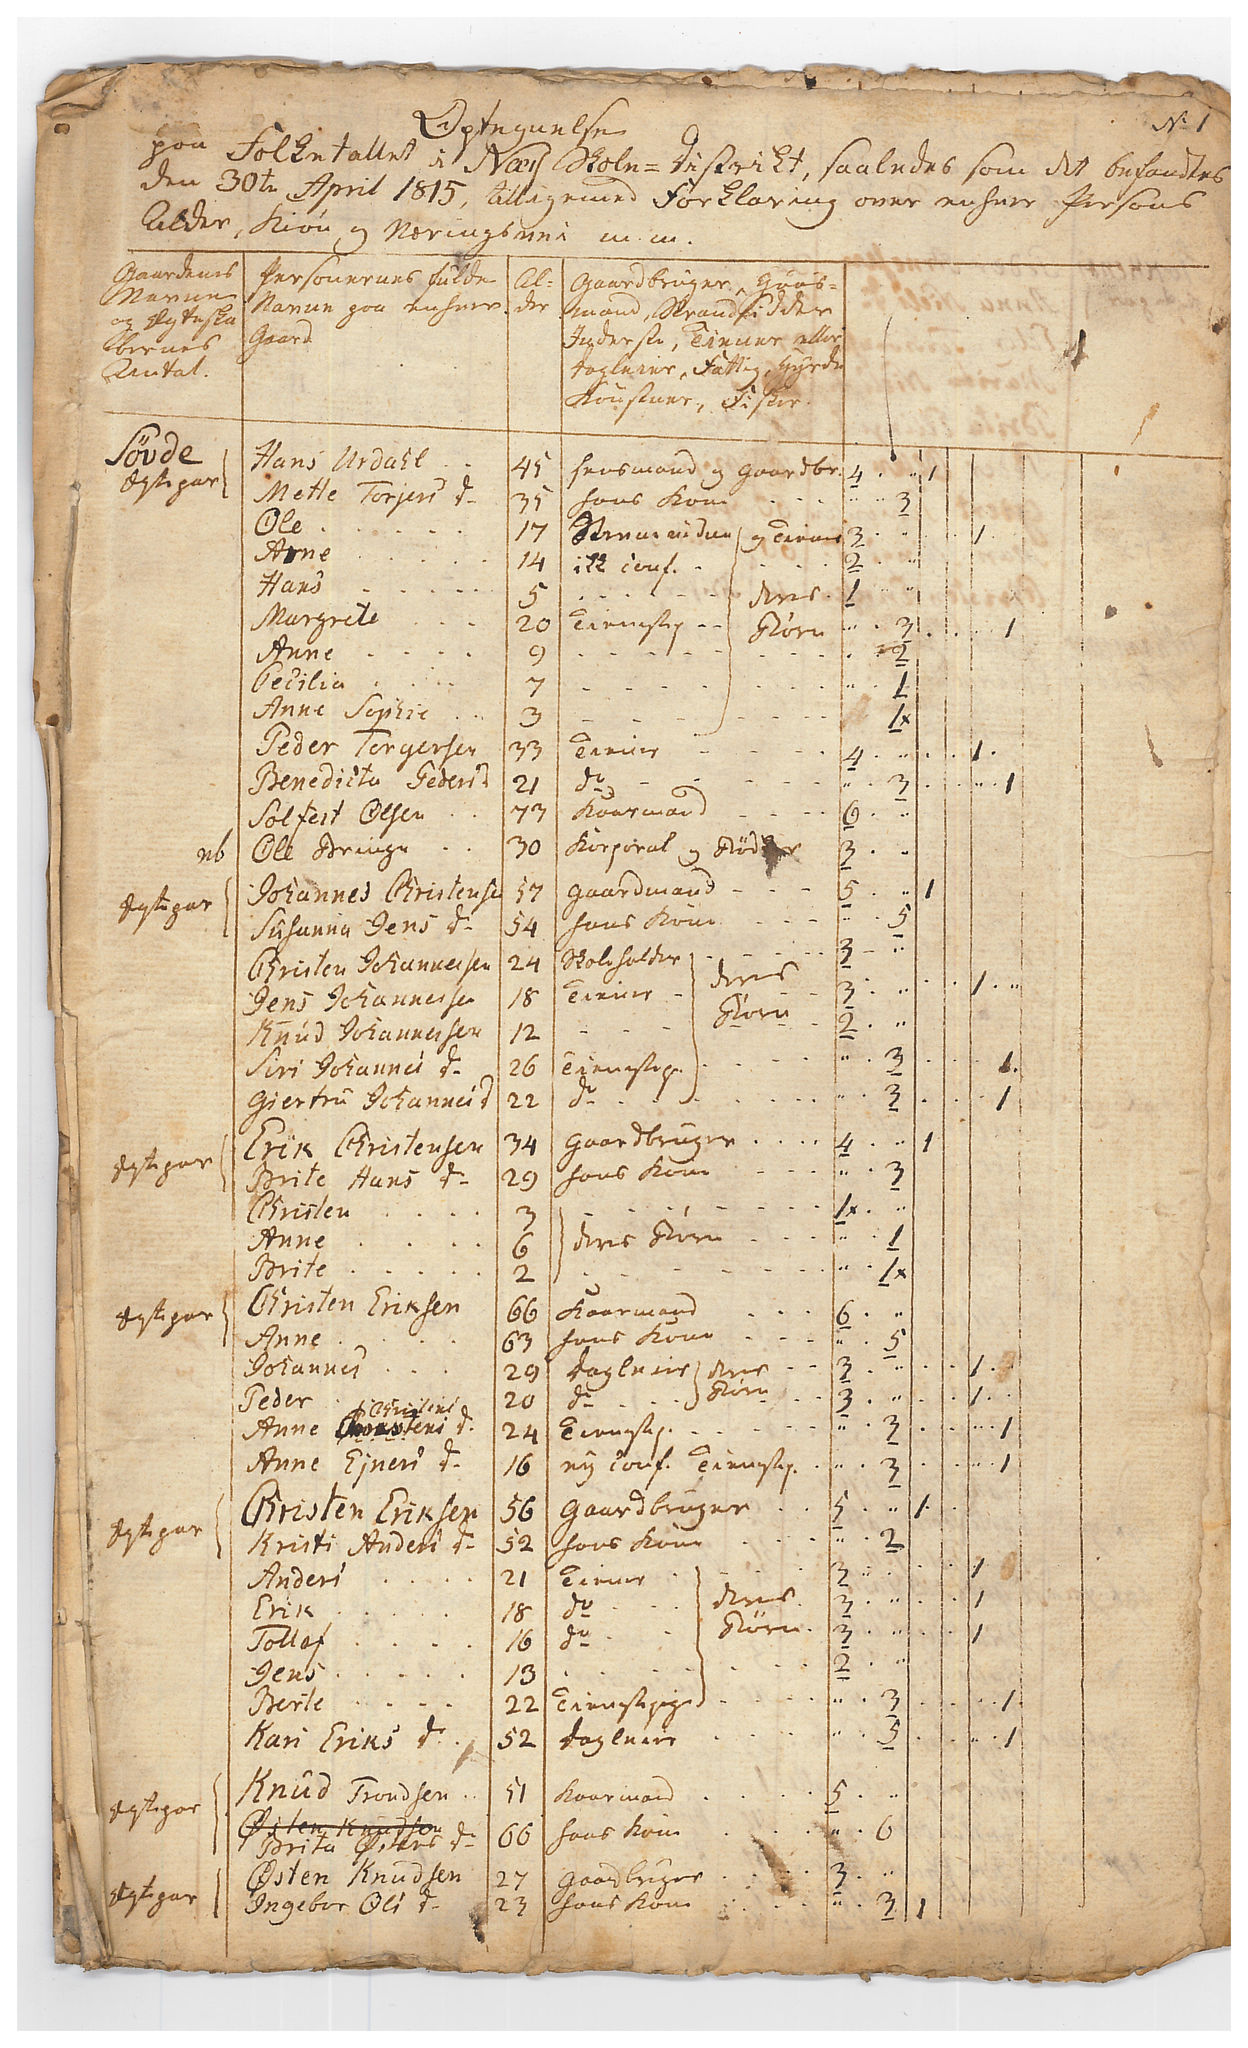 No 1
Optegnelse
paa Folketallet i Næss Skole=District, saaledes som det befandtes
den 30te April 1815, tilligemed Forklaring over enhver Persons
Alder, Kiøn og Næringsvei m. m.
Gaardenes Navne og Ægteskabernes Antal. Personernes fulde Navne paa enhver Gaard Al-der Gaardbruger, Huus-mand, Strandsidder Inderste, Tiener eller Dagleier, Fattig, Hyrde Konstner, Fisker.
Søvde
Ægtepar Hans Urdahl 45 Lensmand og Gaardbr. 4 " 1
Mette Torjers d. 35 hans Kone " 3
Ole 17 og Tiener 3 1
Arne 14 ikk conf. 2 "
Hans 5 deres 1 "
Margrete 20 Tienestep. Børn " 3 1
Anne 9 2
Cecilia 7 " 1
Anne Sophie 3 1x
Peder Torgersen 33 Tiener 4 " 1
Benedicta Peders d 21 do " 3 " 1
Solfest Olsen 73 Kaarmand 6 "
nb Ole Bringe 30 Korporal og Bødker 3 "
Ægtepar Johannes Christensen 57 Gaardmand 5 " 1
Susanna Jens d. 54 hans Kone " 5
Christen Johannessen 24 Skoleholder 3 "
Jens Johannessen 18 Tiener deres 3 " 1 "
Knud Johannessen 12 Børn 2 "
Siri Johannes d. 26 Tienestep. " 3 1
Giertru Johannes d 22 do " 3 1
Ægtepar Erik Christensen 34 Gaardbruger 4 " 1
Brite Hans d. 29 hans Kone " 3
Christen 3 1x "
Anne 6 deres Børn " 1
Brite 2 " 1x
Ægtepar Christen Eriksen 66 Kaarmand 6 "
Anne 63 hans Kone " 5
Johannes 29 Dagleier deres 3 " 1
Peder 20 do Børn 3 " 1
Christens
Anne d. 24 Tienestep. " 3 " 1
Anne Ejners d. 16 ny conf. Tienestep. " 3 " 1
Ægtepar Christen Eriksen 56 Gaardbruger 5 " 1
Kristi Anders d. 52 hans Kone " 2
Anders 21 Tiener 3 " 1
Erik 18 do deres 3 " 1
Tollaf 16 do Børn 3 " 1
Jens 13 2 "
Berte 22 Tienestepige " 3 1
Kari Eriks d. 52 Dagleier " 5 " 1
Ægtepar Knud Trondsen 51 Kaarmand 5 "
Østen Knudsen
Brita Østens d. 66 hans Kone " 6
Østen Knudsen 27 Gaardbruger 3 "
Ægtepar Ingebor Ols d. 23 hans Kone " 3 1